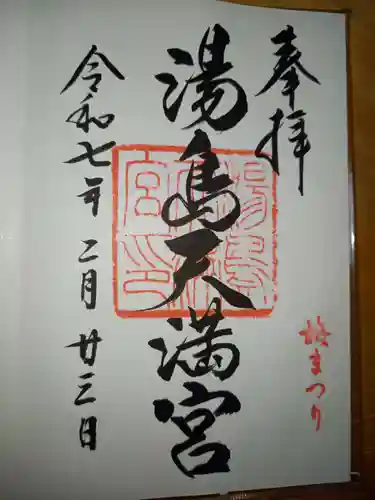 奉拝
梅まつり
湯島天満宮
令和七年 二月 廿三日